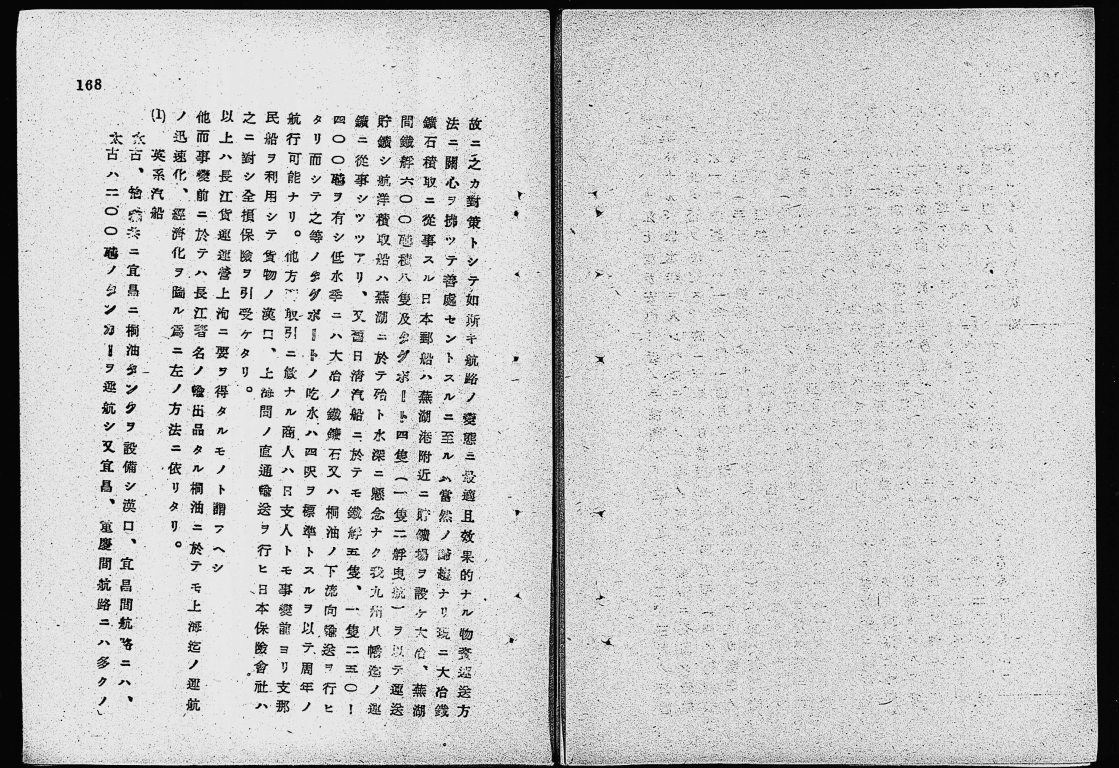 168
故ニ之カ對策トシテ如斯キ航路ノ變態ニ最適且效果的ナル物資運送方
法ニ關心ヲ拂ツテ善處セントスルニ至ルハ當然ノ歸趨ナリ現ニ大冶鐵
鑛石積取ニ從事スル日本郵船ハ蕪湖港附近ニ貯鑛場ヲ設ケ大冶、蕪湖
間鐵艀六〇〇噸積八隻及タグボート四隻(一隻二艀曳航)ヲ以テ運送
貯鑛シ航洋積取船ハ蕪湖ニ於テ殆ト水深ニ懸念ナク我九州八幡迄ノ運
鑛ニ從事シツツアリ、又舊日清汽船ニ於テモ鐵艀五隻、一隻二五〇ー
四〇〇噸ヲ有シ低水季ニハ大冶ノ鐵鑛石又ハ桐油ノ下流向輸送ヲ行ヒ
タリ而シテ之等ノタグボートノ吃水ハ四呎ヲ標準トスルヲ以テ周年ノ
航行可能ナリ。他方 取引ニ敏ナル商人ハ日支人トモ事變前ヨリ支那
民船ヲ利用シテ貨物ノ漢口、上海間ノ直通輸送ヲ行ヒ日本保險會社ハ
之ニ對シ全損保險ヲ引受ケタリ。
以上ハ長江貨運運營上洵ニ要ヲ得タルモノト謂フヘシ
他而事變前ニ於テハ長江著名ノ輸出品タル桐油ニ於テモ上海迄ノ運航
ノ迅速化、經濟化ヲ圖ル爲ニ左ノ方法ニ依リタリ。
(1) 英系汽船
太古、怡 ニ宜昌ニ桐油タンクヲ設備シ漢口、宜昌間航路ニハ、
太古ハ二〇〇噸ノタンカーヲ運航シ又宜昌、重慶間航路ニハ多クノ